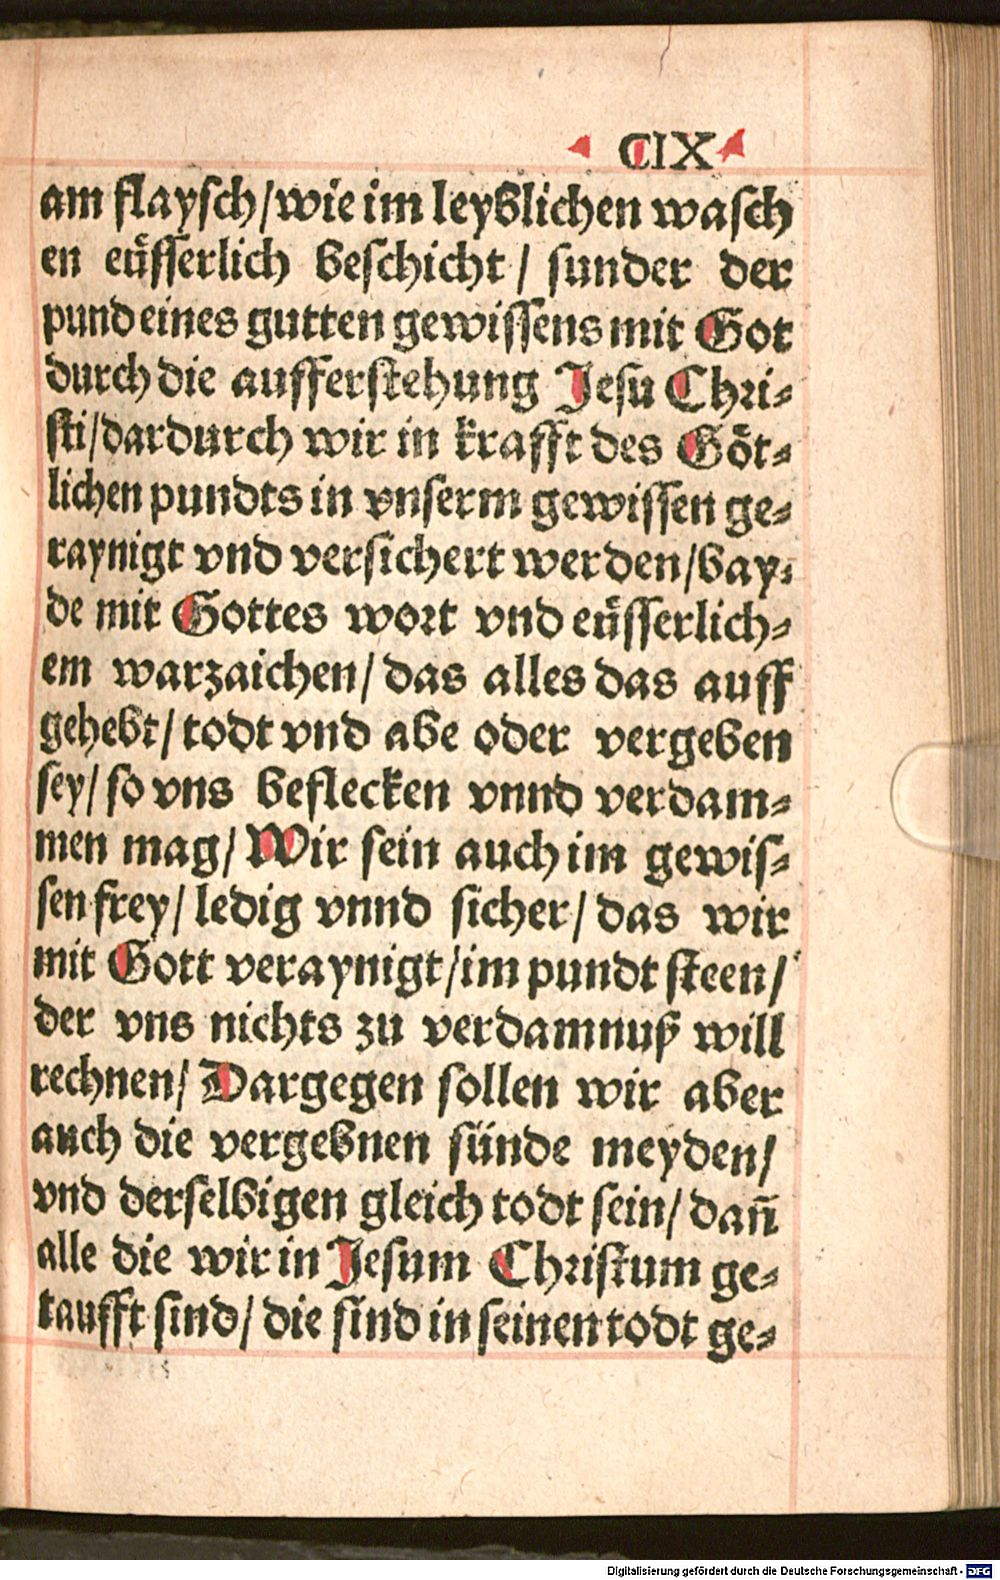 CIX
am flaysch/wie im leyblichen wasch
en eüsserlich beschicht/ sunder der
pund eines gutten gewissens mit Got
durch die aufferstehung Jesu Chri⸗
sti/dardurch wir in krafft des Göt⸗
lichen pundts in vnserm gewissen ge⸗
raynigt vnd versichert werden/bay⸗
de mit Gottes wort vnd eüsserlich⸗
em warzaichen/ das alles das auff
gehebt/ todt vnd abe oder vergeben
sey/ so vns beflecken vnnd verdam⸗
men mag/ Wir sein auch im gewis⸗
sen frey/ ledig vnnd sicher/ das wir
mit Gott veraynigt/im pundt steen/
der vns nichts zu verdamnuß will
rechnen/ Dargegen sollen wir aber
auch die vergebnen sünde meyden/
vnd derselbigen gleich todt sein/ dañ
alle die wir in Jesum Christum ge⸗
taufft sind/ die sind in seinen todt ge⸗
Digitalisierung gefördert durch die Deutsche Forschungsgemeinschaft - DFG